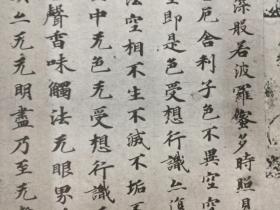 深般若波羅蜜多時照見
厄舍利子色不異空空
空即是色受想行識亦復
法空相不生不滅不垢不
中无色无受想行識
聲香味觸法无眼界
亦无无明盡乃至无老